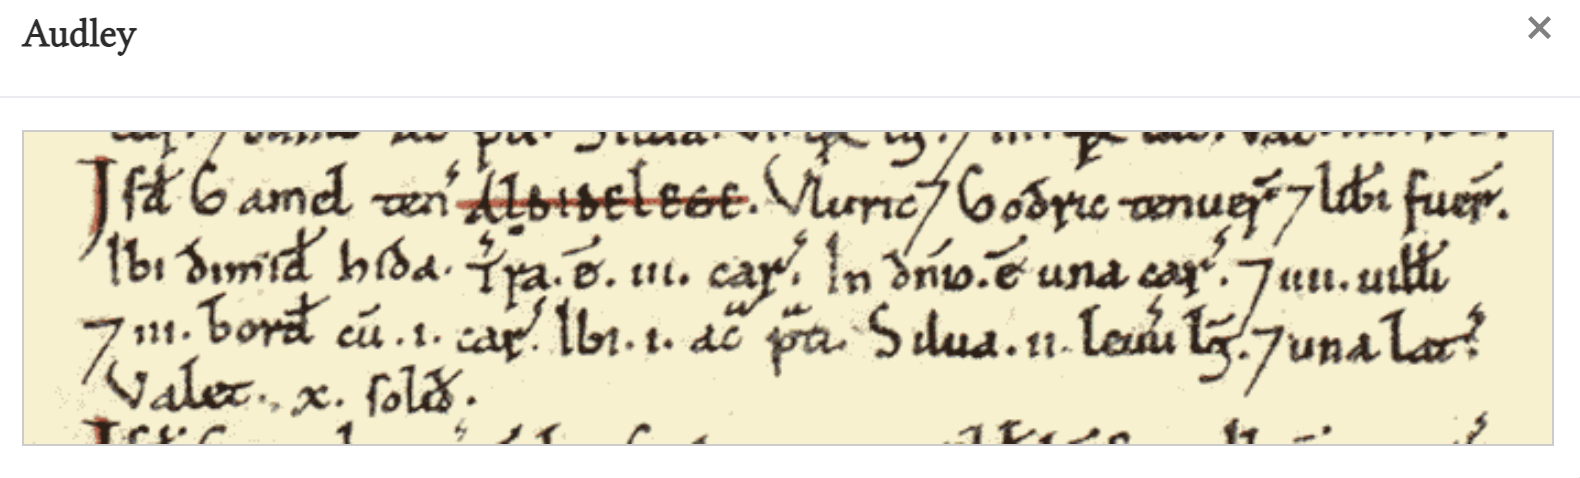 Audley
Isđ Gamel ten̄ Aldidelege. Vluric ⁊ Godric tenuer̄ ⁊ libi fuer̄.
Ibi dimiđ hida. T̄ra. ē. iii. car̄. In dn̄io. ē una car̄. ⁊ iiii. uiłłi
⁊ iii. borđ cū. i. car̄. Ibi. i. ac̄ p̄ti. Silua. ii. leuū lḡ. ⁊ una lat̄.
Valet. x. soliđ.